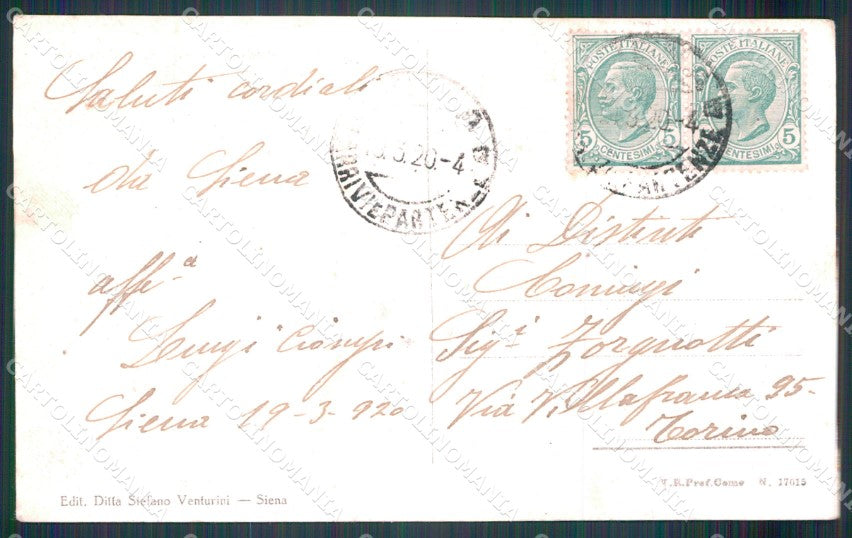 Saluti cordiali
da Siena
aff.a
Luigi Ciompi
Siena 19-3-920
POSTE ITALIANE
5
CENTESIMI
POSTE ITALIANE
5
CENTESIMI
3.20.-4
ARRIVI E PARTENZE
Ai Distinti
Coniugi
Sig.i Zorgnotti
Via Villafranca 25-
Torino
Edit. Ditta Stefano Venturini — Siena
Pref. Como N. 17615
CARTOLINOMANIA